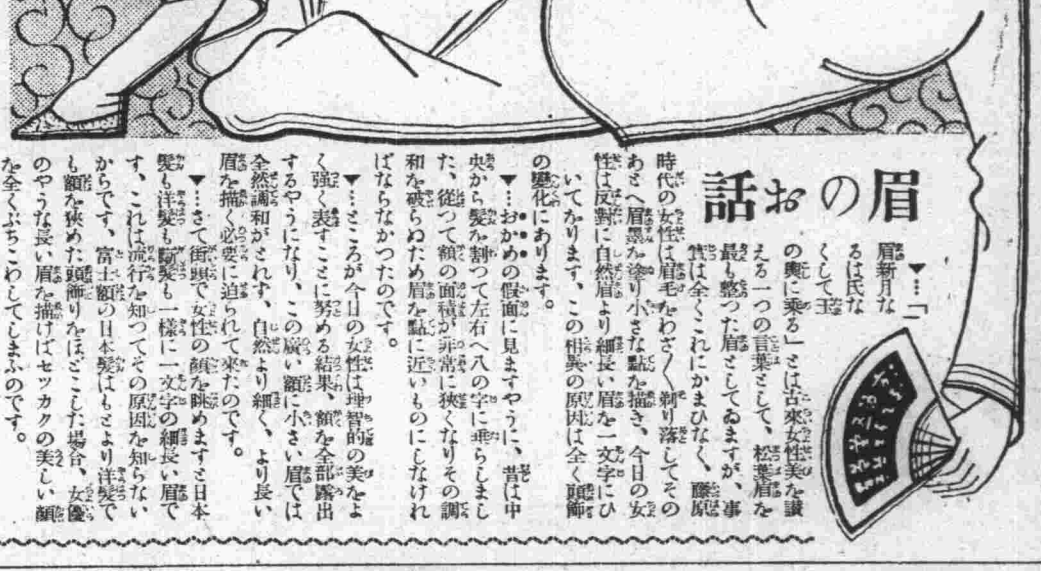 眉のお話
▼…「
眉新月な
るは氏な
くして玉
の輿に乘る」とは古來女性美を讃
える一つの言葉として、松葉眉を
最も整つた眉としてゐますが、事
實は全くこれにかまひなく、藤原
時代の女性は眉毛をわざ〲剃り落してその
あとへ眉墨を塗り小さな點を描き、今日の女
性は反對に自然眉より細長い眉を一文字にひ
いてをります、この相異の原因は全く頭飾
の變化にあります。
▼…おかめの假面に見ますやうに、昔は中
央から髮を割つて左右へ八の字に垂らしまし
た、從つて額の面積が非常に狹くなりその調
和を破らぬため眉を點に近いものにしなけれ
ばならなかつたのです。
▼…ところが今日の女性は理智的の美をよ
く强く表すことに努める結果、額を全部露出
するやうになり、この廣い額に小さい眉では
全然調和がとれず、自然より細く、より長い
眉を描く必要に迫られて來たのです。
▼…さて街頭で女性の顏を眺めますと日本
髮も洋髮も斷髮も一樣に一文字の細長い眉で
す、これは流行を知つてその原因を知らない
からです、富士額の日本髮はもとより洋髮で
も額を狹めた頭飾りをほどこした場合、女優
のやうな長い眉を描けばセッカクの美しい顏
を全くぶちこわしてしまふのです。